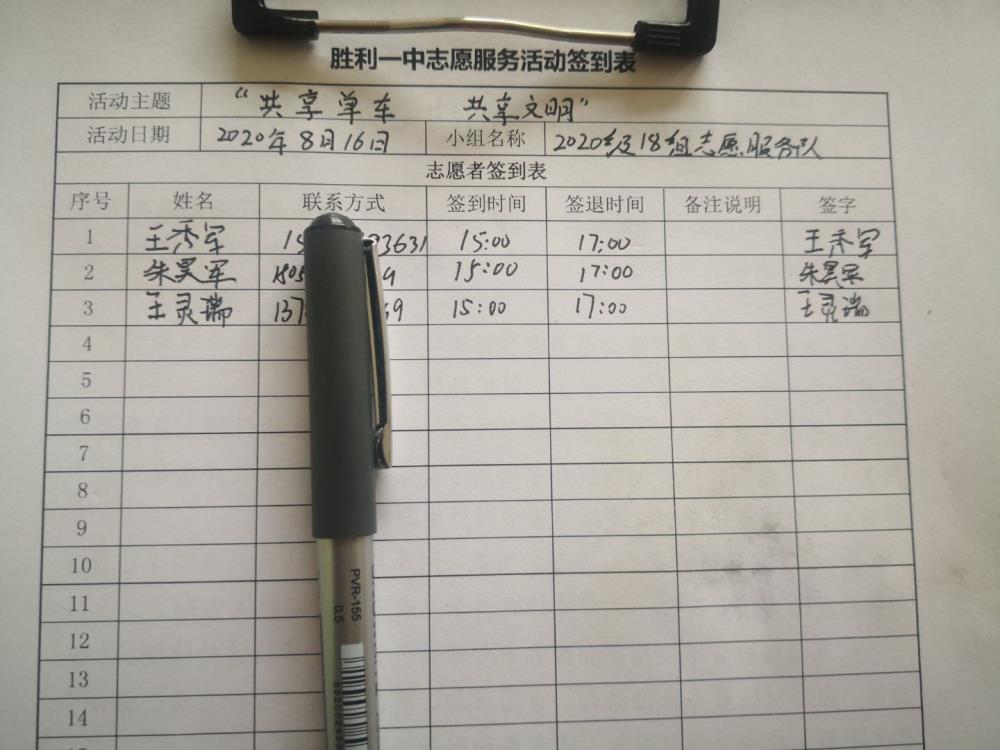 胜利一中志愿服务活动签到表
活动主题 “共享单车 共享文明”
活动日期 2020年8月16日 小组名称 2020级18组志愿服务队
志愿者签到表
序号 姓名 联系方式 签到时间 签退时间 备注说明 签字
1 王秀军 15 3631 15:00 17:00 王秀军
2 朱昊军 1805 9 15:00 17:00 朱昊军
3 王灵瑞 137 69 15:00 17:00 王灵瑞
4
5
6
7
8
9
10
11
12
13
14
PVR-155
0.5